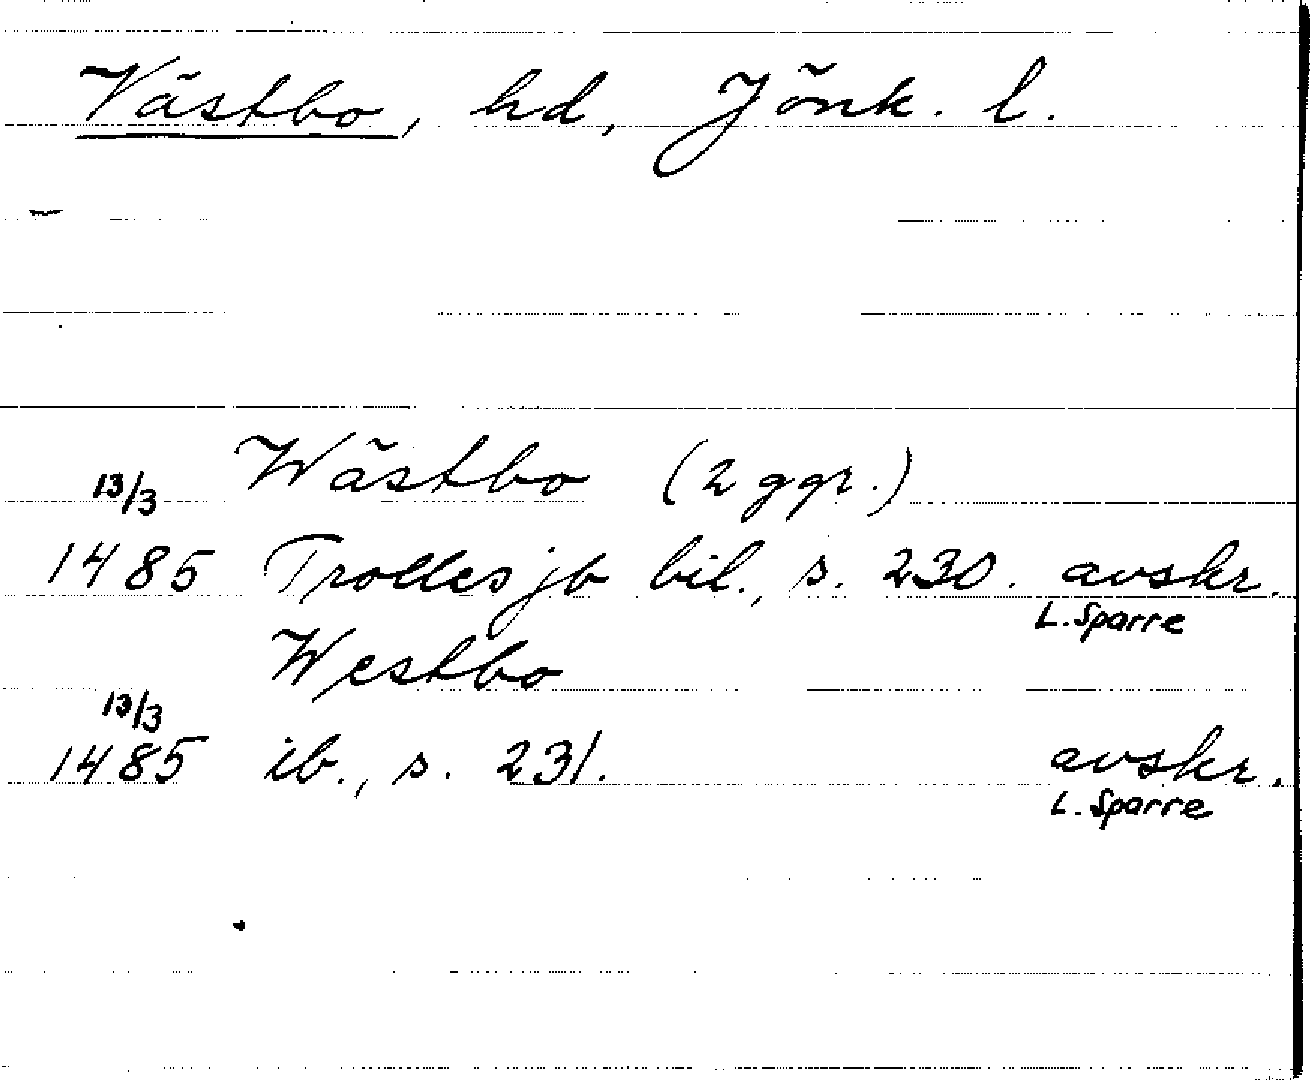 Västbo, hd, Jönk. l.
Wästbo (2 ggr.)
13/3
1485 Trolles jb bil., s. 230. avskr.
L. Sparre
Westbo
13/3
1485 ib., s. 231. avskr.
L. Sparre